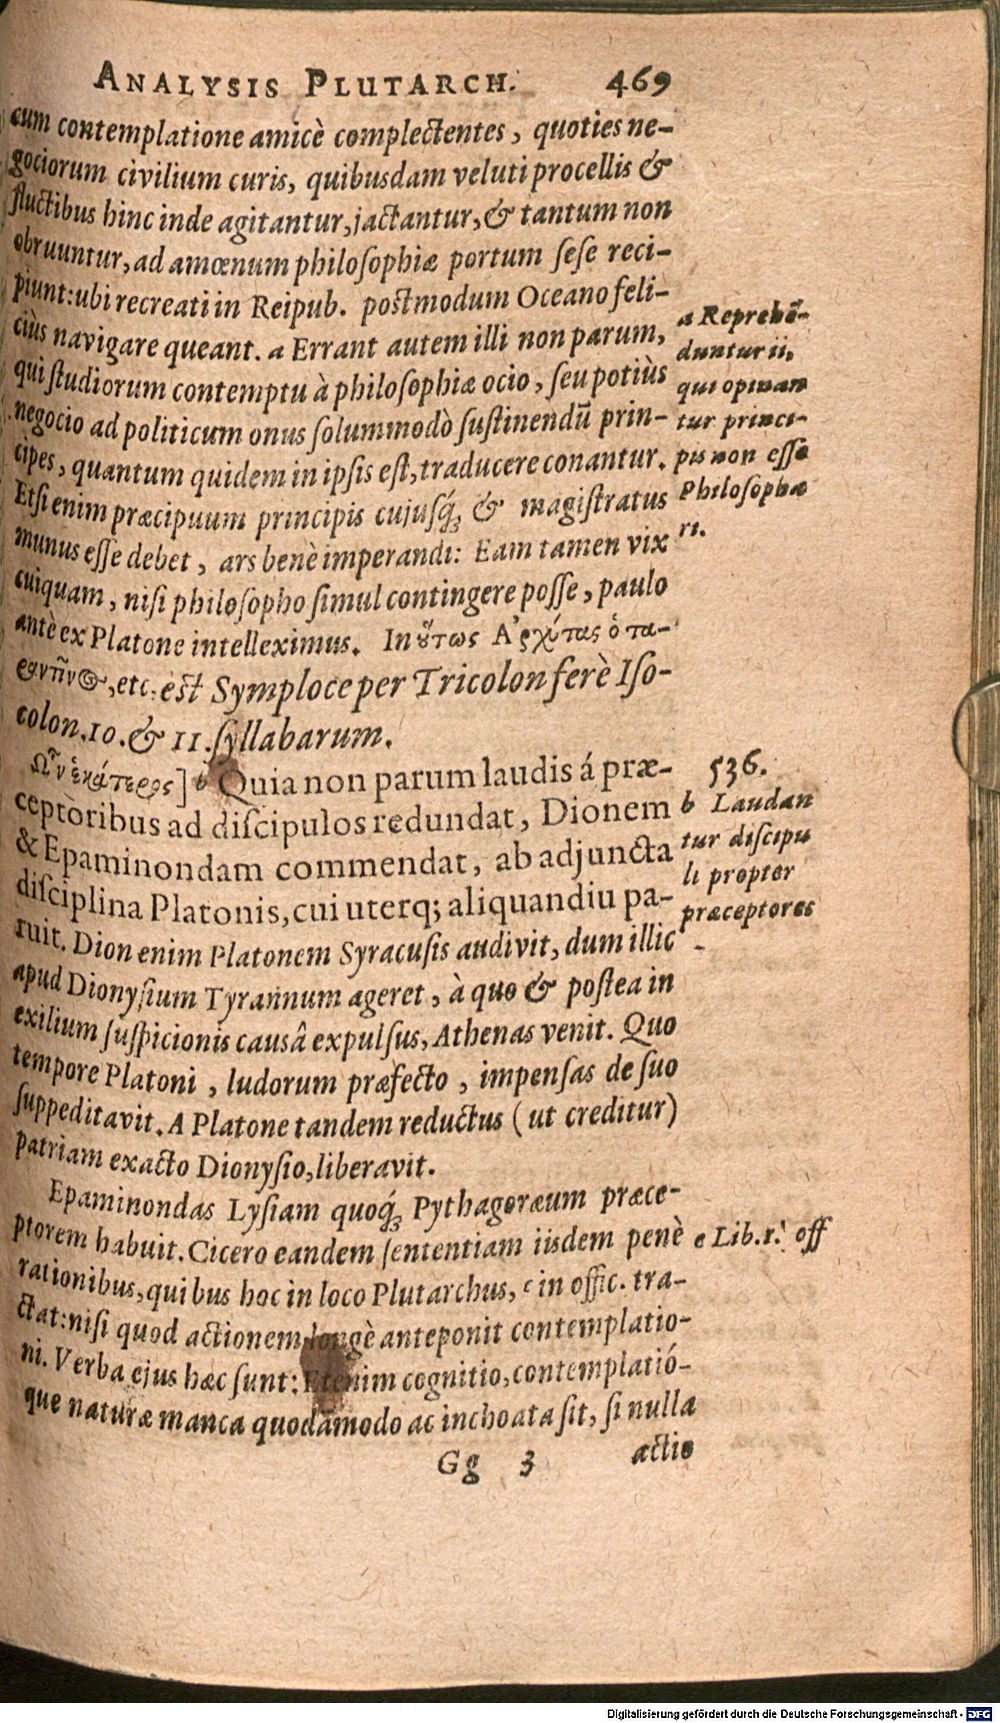 ANALYSIS PLUTARCH. 469
cum contemplatione amicè complectentes, quoties ne-
gociorum civilium curis, quibusdam veluti procellis &
fluctibus hinc inde agitantur, jactantur, & tantum non
obruuntur, ad amœnum philosophiæ portum sese reci-
piunt: ubi recreati in Reipub. postmodum Oceano feli-
ciùs navigare queant. a Errant autem illi non parum,
qui studiorum contemptu à philosophiæ ocio, seu potiùs
negocio ad politicum onus solummodò sustinendũ prin-
cipes, quantum quidem in ipsis est, traducere conantur.
Etsi enim præcipuum principis cujusq́; & magistratus
munus esse debet, ars benè imperandi: Eam tamen vix
cuiquam, nisi philosopho simul contingere posse, paulo
antè ex Platone intelleximus. In οὕτως Ἀρχύτας ὁ τα-
ραντῖνος, etc. est Symploce per Tricolon ferè Iso-
colon. 10. & 11. syllabarum.
a Reprehẽ-
duntur ii,
qui opinan
tur princi-
pis non esse
Philosopha
ri.
Ὧν ἑκάτερος] b Quia non parum laudis á præ-
ceptoribus ad discipulos redundat, Dionem
& Epaminondam commendat, ab adjuncta
disciplina Platonis, cui uterq; aliquandiu pa-
ruit. Dion enim Platonem Syracusis audivit, dum illic
apud Dionysium Tyrannum ageret, à quo & postea in
exilium suspicionis causâ expulsus, Athenas venit. Quo
tempore Platoni, ludorum præfecto, impensas de suo
suppeditavit. A Platone tandem reductus (ut creditur)
patriam exacto Dionysio, liberavit.
536.
b Laudan
tur discipu
li propter
præceptores
Epaminondas Lysiam quoq́; Pythagoræum præce-
ptorem habuit. Cicero eandem sententiam iisdem penè
rationibus, quibus hoc in loco Plutarchus, c in offic. tra-
ctat: nisi quod actionem longè anteponit contemplatio-
ni. Verba ejus hæc sunt: Etenim cognitio, contemplatió-
que naturæ manca quodãmodo ac inchoata sit, si nulla
c Lib. 1. off
Gg 3 actio
Digitalisierung gefördert durch die Deutsche Forschungsgemeinschaft - DFG